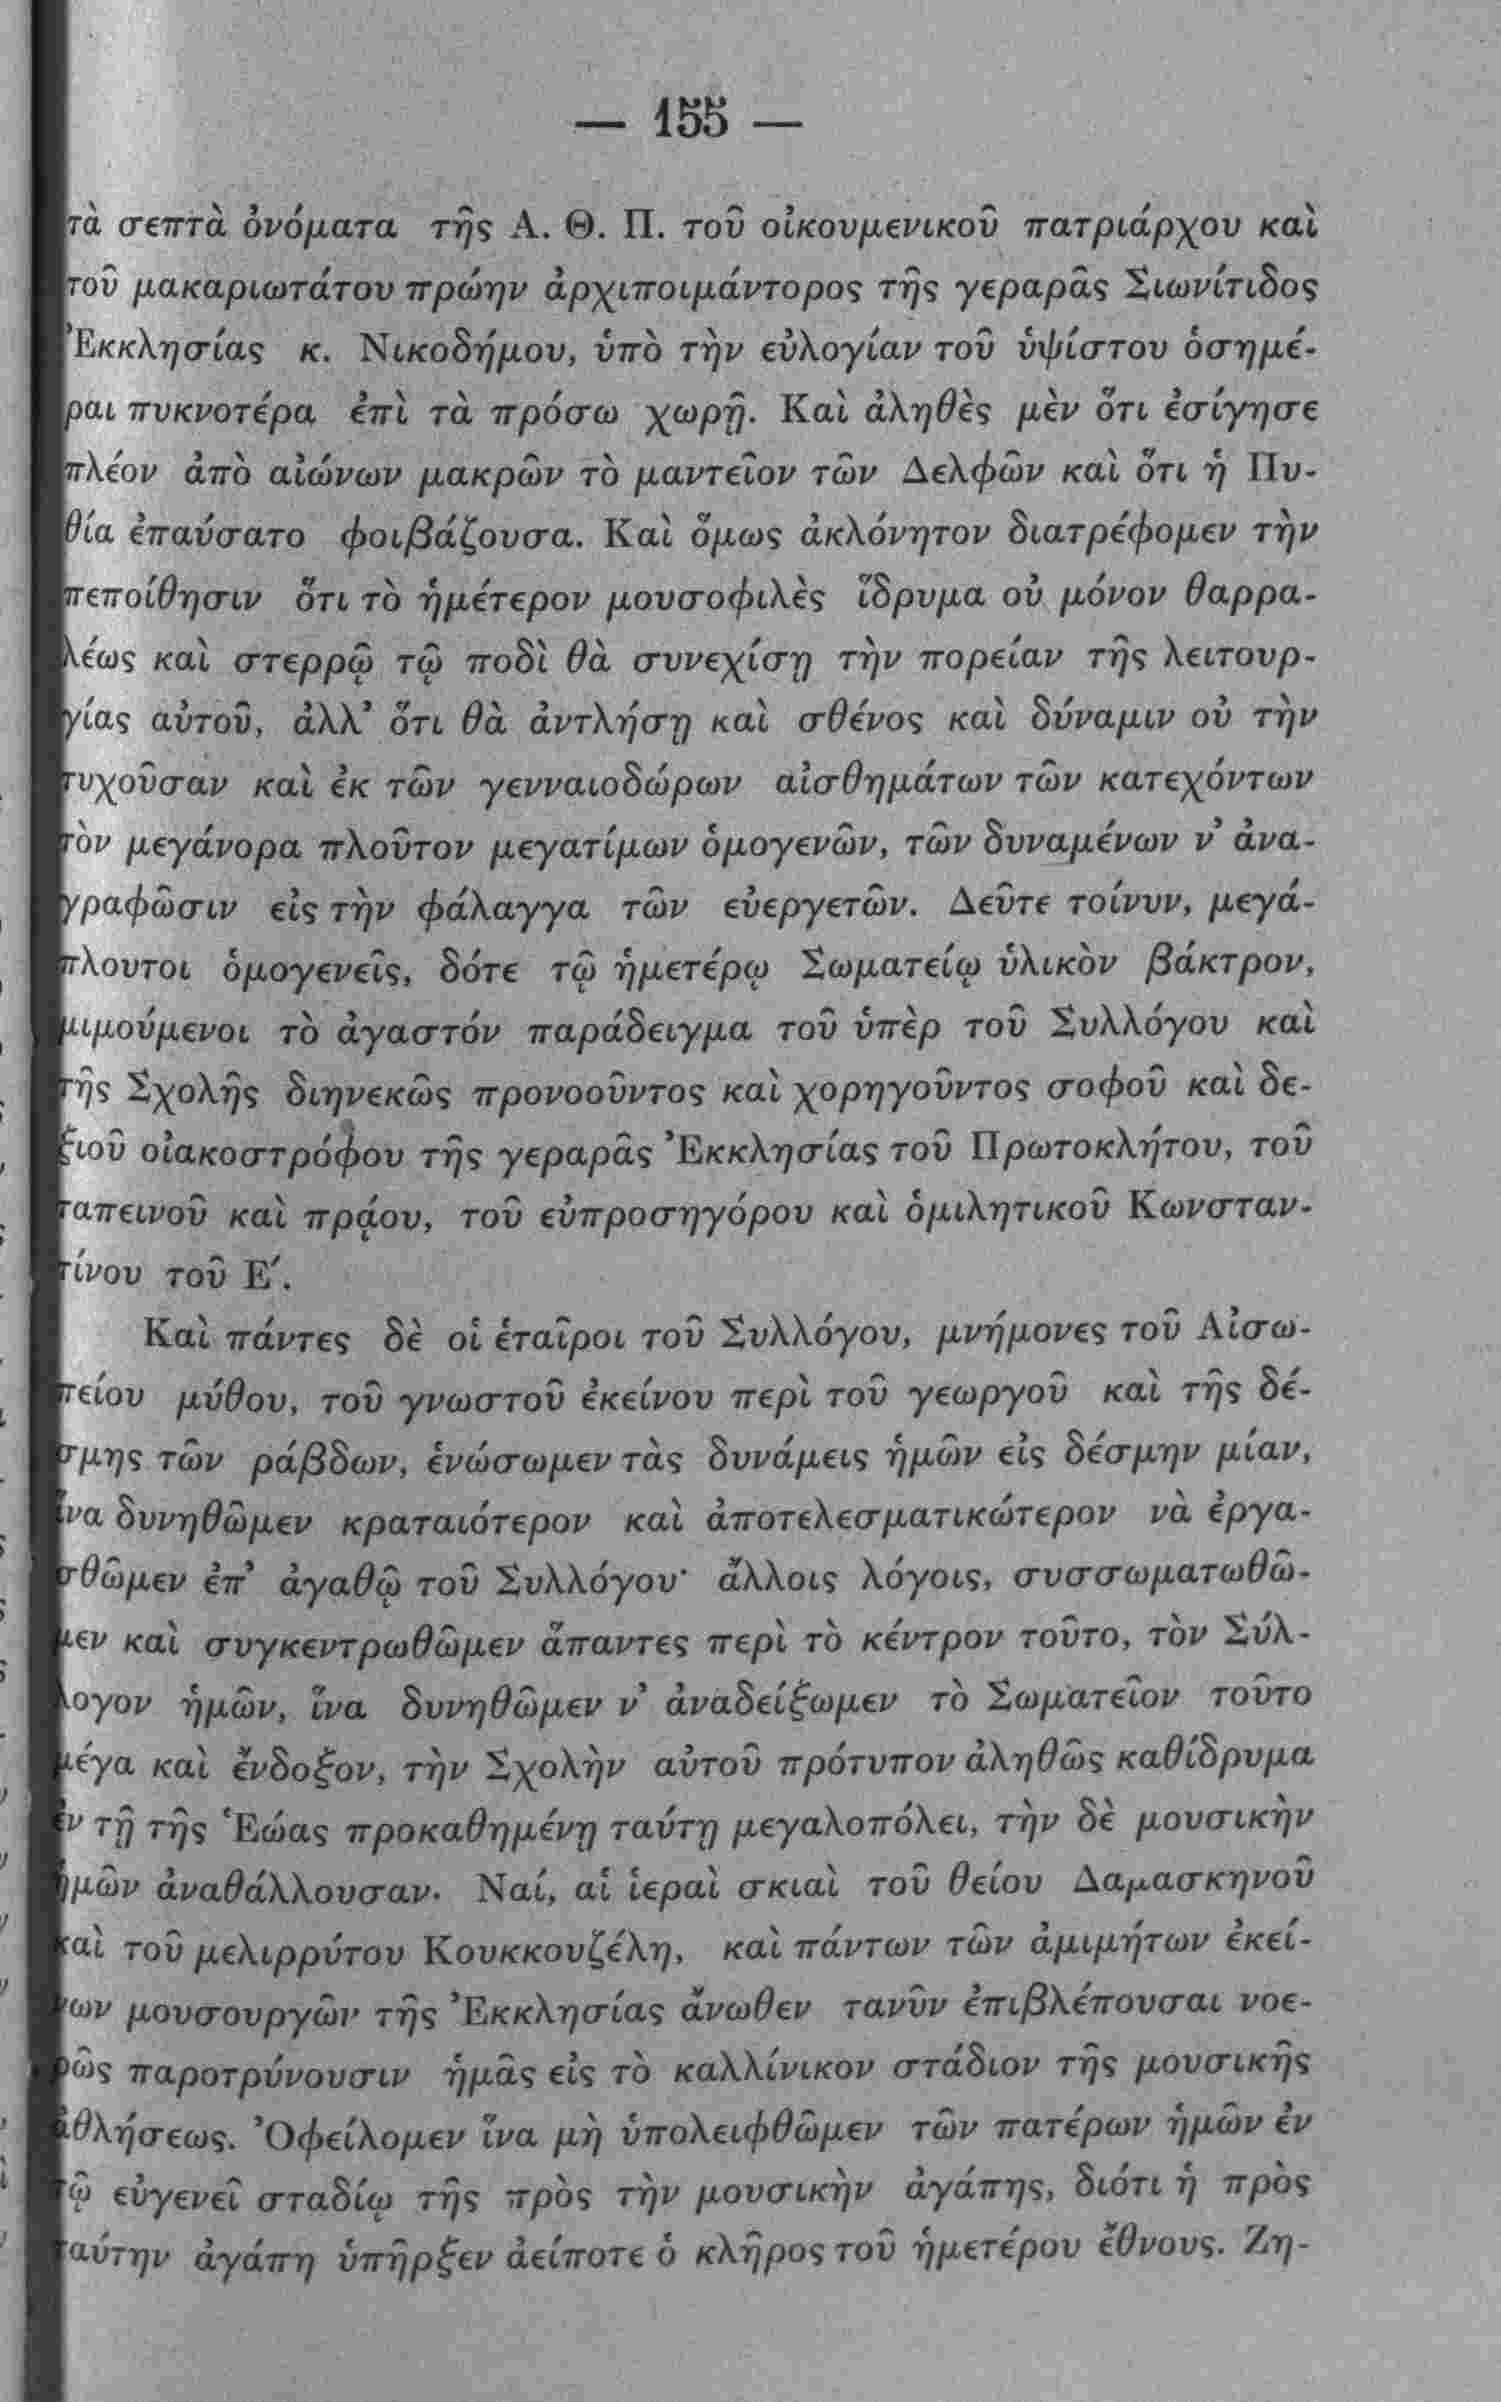 — 155 —
τὰ σεπτὰ ὀνόματα τῆς Α. Θ. Π. τοῦ οἰκουμενικοῦ πατριάρχου καὶ
τοῦ μακαριωτάτου πρώην ἀρχιποιμάντορος τῆς γεραρᾶς Σιωνίτιδος
Ἐκκλησίας κ. Νικοδήμου, ὑπὸ τὴν εὐλογίαν τοῦ ὑψίστου ὁσημέ-
ραι πυκνοτέρα ἐπὶ τὰ πρόσω χωρῇ. Καὶ ἀληθὲς μὲν ὅτι ἐσίγησε
πλέον ἀπὸ αἰώνων μακρῶν τὸ μαντεῖον τῶν Δελφῶν καὶ ὅτι ἡ Πυ-
θία ἐπαύσατο φοιβάζουσα. Καὶ ὅμως ἀκλόνητον διατρέφομεν τὴν
πεποίθησιν ὅτι τὸ ἡμέτερον μουσοφιλὲς ἵδρυμα οὐ μόνον θαρρα-
λέως καὶ στερρῷ τῷ ποδὶ θὰ συνεχίσῃ τὴν πορείαν τῆς λειτουρ-
γίας αὐτοῦ, ἀλλ’ ὅτι θὰ ἀντλήσῃ καὶ σθένος καὶ δύναμιν οὐ τὴν
τυχοῦσαν καὶ ἐκ τῶν γενναιοδώρων αἰσθημάτων τῶν κατεχόντων
τὸν μεγάνορα πλοῦτον μεγατίμων ὁμογενῶν, τῶν δυναμένων ν’ ἀνα-
γραφῶσιν εἰς τὴν φάλαγγα τῶν εὐεργετῶν. Δεῦτε τοίνυν, μεγά-
πλουτοι ὁμογενεῖς, δότε τῷ ἡμετέρῳ Σωματείῳ ὑλικὸν βάκτρον,
μιμούμενοι τὸ ἀγαστόν παράδειγμα τοῦ ὑπὲρ τοῦ Συλλόγου καὶ
τῆς Σχολῆς διηνεκῶς προνοοῦντος καὶ χορηγοῦντος σοφοῦ καὶ δε-
ξιοῦ οἰακοστρόφου τῆς γεραρᾶς Ἐκκλησίας τοῦ Πρωτοκλήτου, τοῦ
ταπεινοῦ καὶ πρᾴου, τοῦ εὐπροσηγόρου καὶ ὁμιλητικοῦ Κωνσταν-
τίνου τοῦ Ε΄.
Καὶ πάντες δὲ οἱ ἑταῖροι τοῦ Συλλόγου, μνήμονες τοῦ Αἰσω-
πείου μύθου, τοῦ γνωστοῦ ἐκείνου περὶ τοῦ γεωργοῦ καὶ τῆς δέ-
σμης τῶν ράβδων, ἑνώσωμεν τὰς δυνάμεις ἡμῶν εἰς δέσμην μίαν,
ἵνα δυνηθῶμεν κραταιότερον καὶ ἀποτελεσματικώτερον νὰ ἐργα-
σθῶμεν ἐπ’ ἀγαθῷ τοῦ Συλλόγου· ἄλλοις λόγοις, συσσωματωθῶ-
μεν καὶ συγκεντρωθῶμεν ἅπαντες περὶ τὸ κέντρον τοῦτο, τὸν Σύλ-
λογον ἡμῶν, ἵνα δυνηθῶμεν ν’ ἀναδείξωμεν τὸ Σωματεῖον τοῦτο
μέγα καὶ ἔνδοξον, τὴν Σχολὴν αὐτοῦ πρότυπον ἀληθῶς καθίδρυμα
ἐν τῇ τῆς Ἑώας προκαθημένῃ ταύτῃ μεγαλοπόλει, τὴν δὲ μουσικὴν
ἡμῶν ἀναθάλλουσαν. Ναί, αἱ ἱεραὶ σκιαὶ τοῦ θείου Δαμασκηνοῦ
καὶ τοῦ μελιρρύτου Κουκκουζέλη, καὶ πάντων τῶν ἀμιμήτων ἐκεί-
νων μουσουργῶν τῆς Ἐκκλησίας ἄνωθεν τανῦν ἐπιβλέπουσαι νοε-
ρῶς παροτρύνουσιν ἡμᾶς εἰς τὸ καλλίνικον στάδιον τῆς μουσικῆς
ἀθλήσεως. Ὀφείλομεν ἵνα μὴ ὑπολειφθῶμεν τῶν πατέρων ἡμῶν ἐν
τῷ εὐγενεῖ σταδίῳ τῆς πρὸς τὴν μουσικὴν ἀγάπης, διότι ἡ πρὸς
ταύτην ἀγάπη ὑπῆρξεν ἀείποτε ὁ κλῆρος τοῦ ἡμετέρου ἔθνους. Ζη-